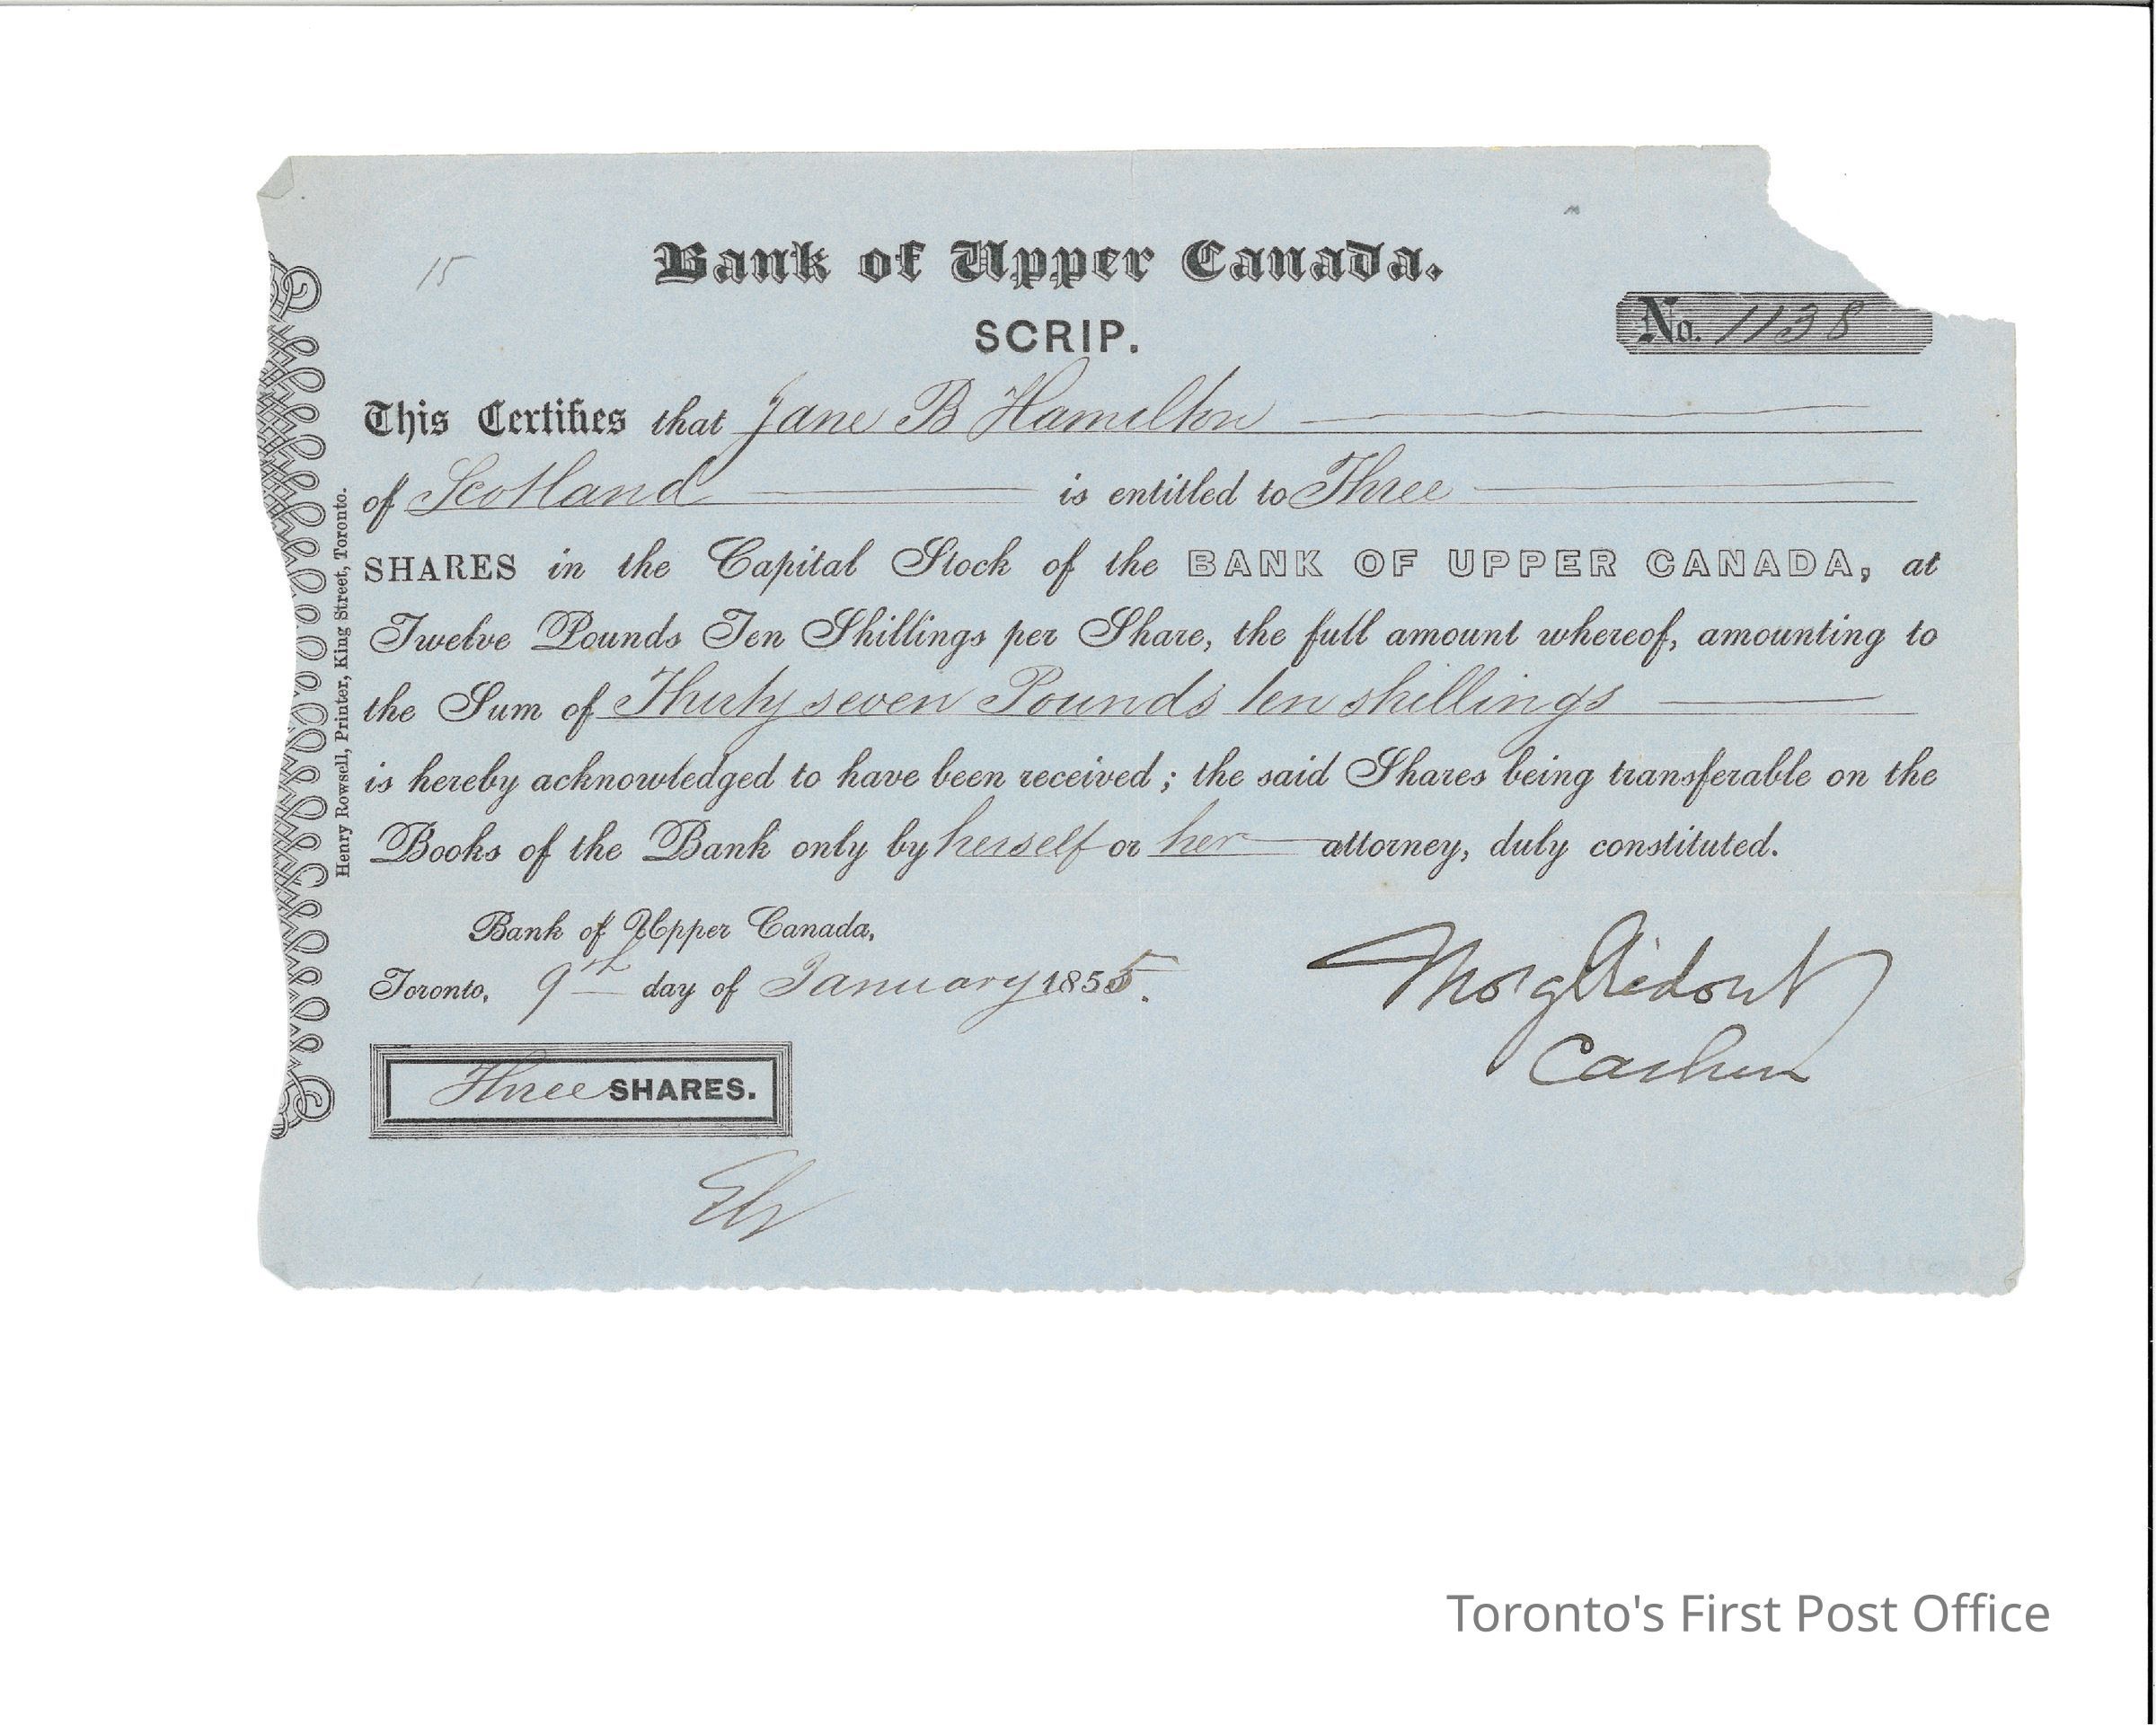 15
Bank of Upper Canada.
No. 1138
SCRIP.
This Certifies that Jane B Hamilton
of Scotland is entitled to Three
SHARES in the Capital Stock of the BANK OF UPPER CANADA, at
Twelve Pounds Ten Shillings per Share, the full amount whereof, amounting to
the Sum of Thirty seven Pounds ten shillings
is hereby acknowledged to have been received; the said Shares being transferable on the
Books of the Bank only by herself or her attorney, duly constituted.
Bank of Upper Canada,
Toronto, 9th day of January 1855.
Thos G Ridout
Cashier
Three SHARES.
Henry Rowsell, Printer, King Street, Toronto.
Toronto's First Post Office